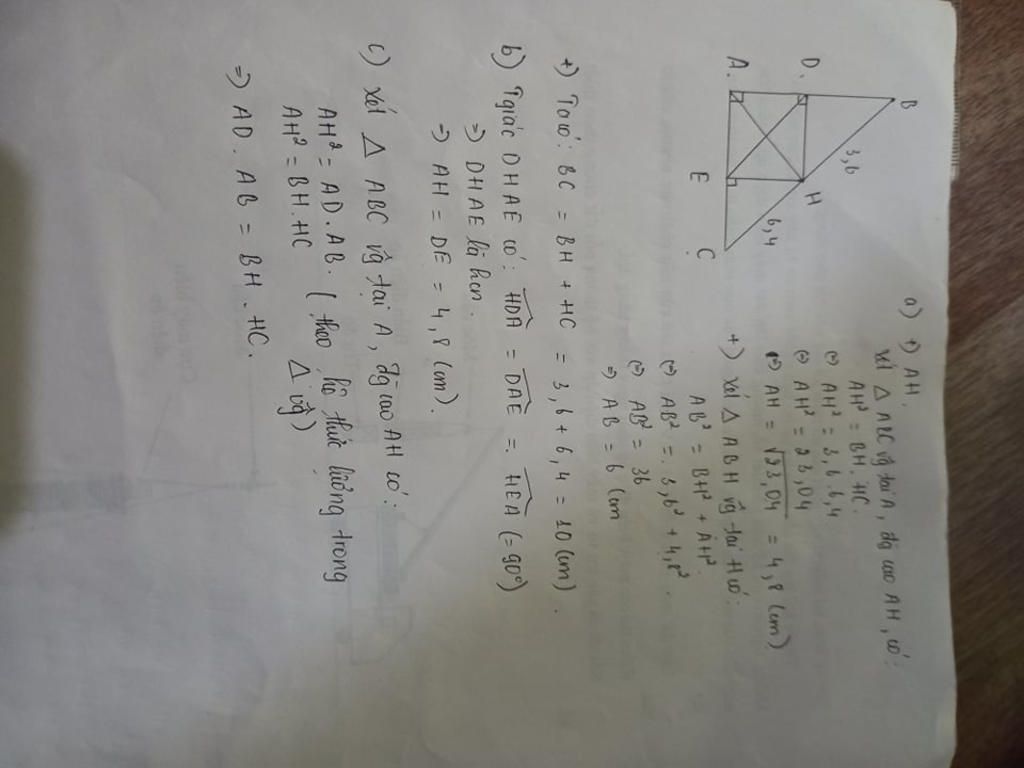 B
3,6
D.
H
6,4
A.
E
C
a) +) AH.
Xét Δ ABC vg tại A, đg cao AH, có:
AH² = BH.HC.
(=) AH² = 3,6.6,4
(=) AH² = 23,04
(=) AH = √23,04 = 4,8 (cm)
+) Xét Δ ABH vg tại H có:
AB² = BH² + AH².
(=) AB² = 3,6² + 4,8².
(=) AB² = 36
=) AB = 6 cm
+) Ta có: BC = BH + HC = 3,6 + 6,4 = 10 (cm).
b) Tgiác DHAE có: HDA = DAE = HEA (= 90°)
=) DHAE là hcn.
=) AH = DE = 4,8 (cm).
c) Xét Δ ABC vg tại A, đg cao AH có:
AH² = AD. AB. ( theo hệ thức lượng trong
Δ vg)
AH² = BH.HC
=) AD. AB = BH. HC.